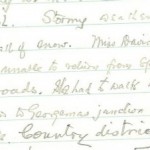 Stormy weather
fall of snow. Miss Baird
unable to return from
roads. He had to walk
to Georgemas junction
Country district